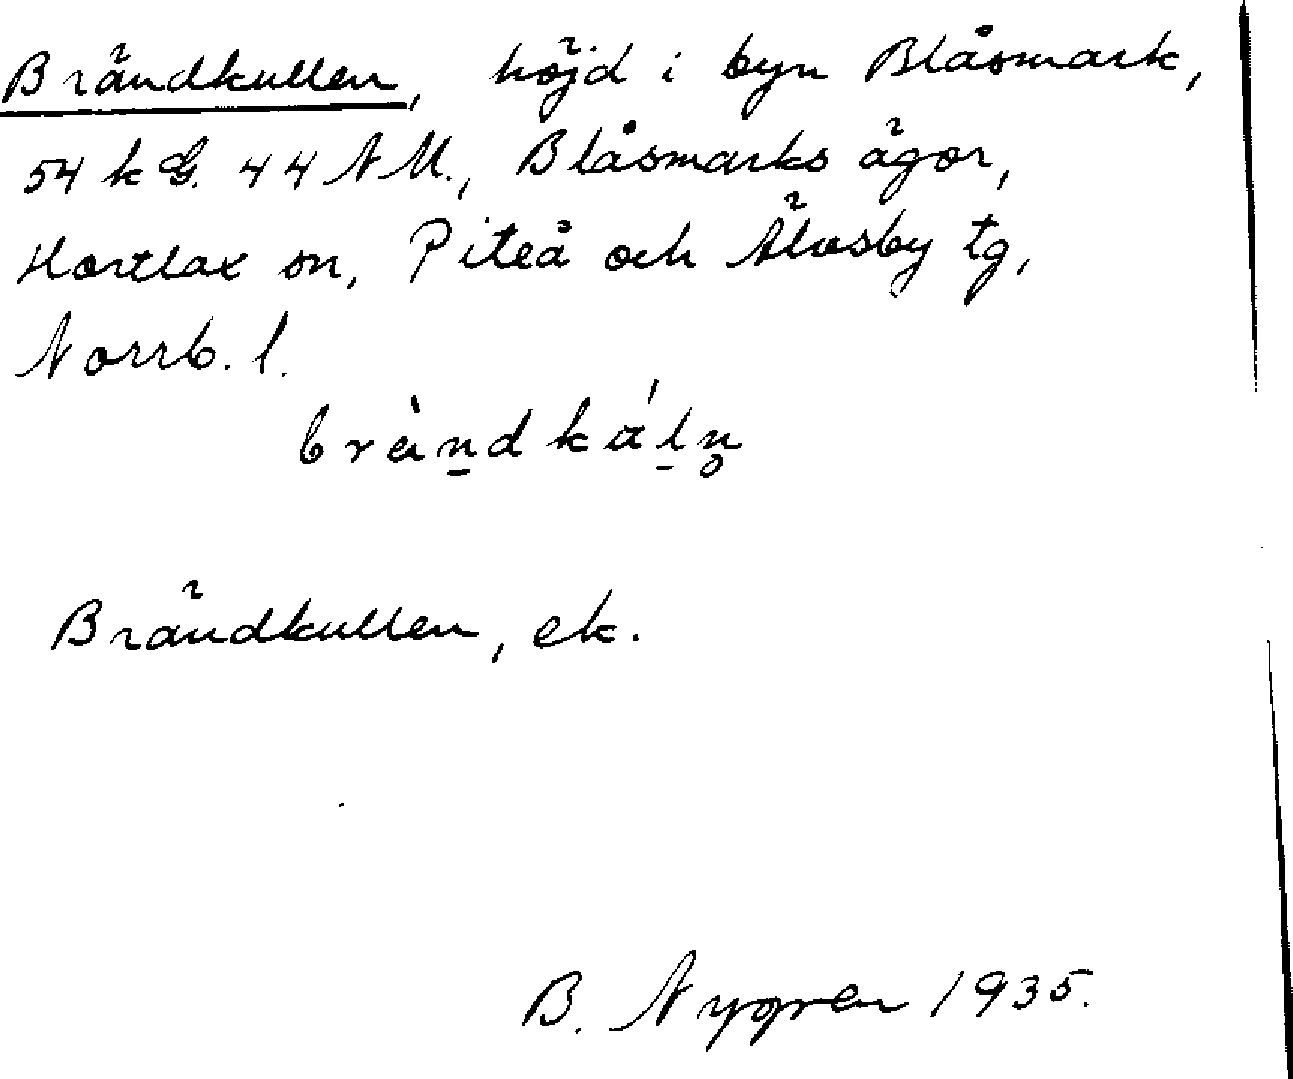 Brändkullen, höjd i byn Blåsmark,
54 k G. 44 N M., Blåsmarks ägor,
Hortlax sn, Piteå och Älvsby tg,
Norrb. l.
brä̀n̲dká'l̲n̥
Brändkullen, ek.
B. Nygren 1935.